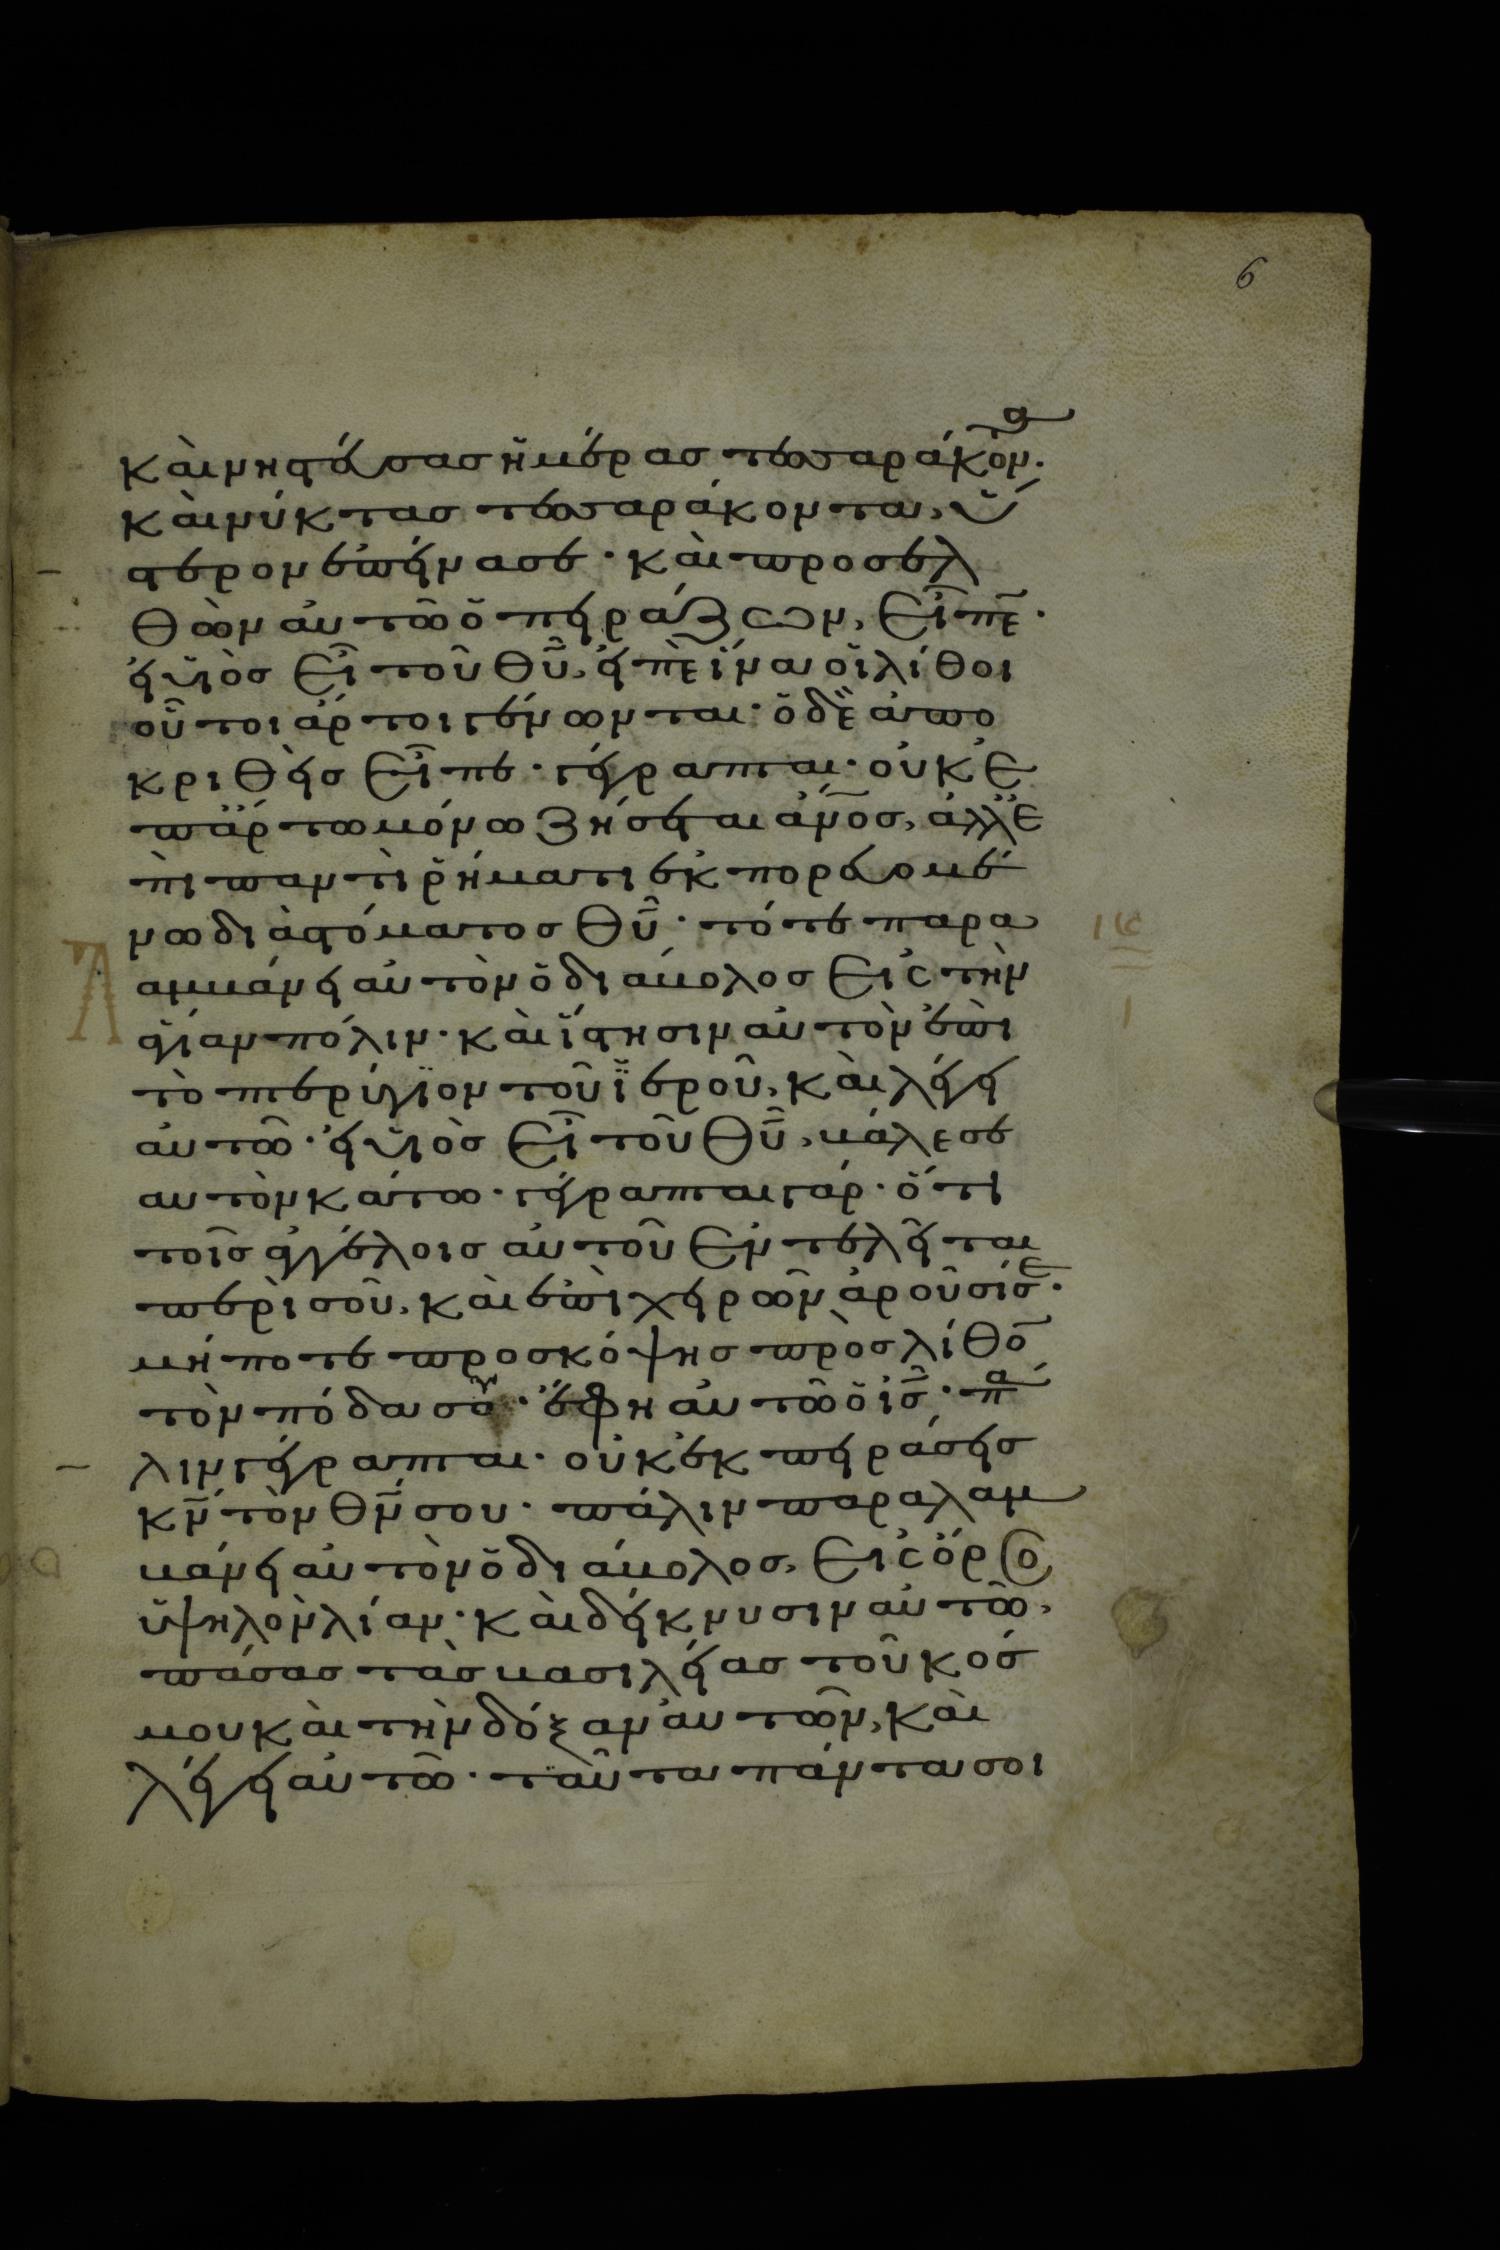 6
καὶ νηστεύσας ἡμέρας τεσσαράκοντα·
καὶ νύκτας τεσσαράκοντα, ὕ
στερον ἐπείνασε· καὶ προσελ
θὼν αὐτῶ ὁ πειράζων, εἶπε·
εἰ υἱὸς εἶ τοῦ θῦ, εἰπὲ ἵνα οἱ λίθοι
οὗτοι ἄρτοι γένωνται· ὁ δὲ ἀπο
κριθεὶς εἶπε· γέγραπται· οὐκ ἐ
π ἄρτω μόνω ζήσεται ἄνος, ἀλλ ἐ
πὶ παντὶ ῥήματι ἐκπορευομέ
νω διὰ στόματος θῦ· τότε παρα
λαμβάνει αὐτὸν ὁ διάβολος εἰς τὴν
ἁγίαν πόλιν· καὶ ἵστησιν αὐτὸν ἐπὶ
τὸ πτερύγιον τοῦ ἱεροῦ, καὶ λέγει
αὐτῶ· εἰ υἱὸς εἶ τοῦ θῦ, βάλε σε
αυτὸν κάτω· γέγραπται γάρ· ὅτι
τοῖς ἀγγέλοις αὐτοῦ ἐντελεῖται
περὶ σοῦ, καὶ ἐπὶ χειρῶν ἀροῦσί σε·
μήποτε προσκόψης πρὸς λίθον
τὸν πόδα σου· ἔφη αὐτῶ ὁ ις· πά
λιν γέγραπται· οὐκ ἐκπειράσεις
κν τὸν θν σου· πάλιν παραλαμ
βάνει αὐτὸν ὁ διάβολος, εἰς ὄρος
ὑψηλὸν λίαν· καὶ δείκνυσιν αὐτῶ,
πάσας τὰς βασιλείας τοῦ κόσ
μου καὶ τὴν δόξαν αὐτῶν, καὶ
λέγει αὐτῶ· ταῦτα πάντα σοι